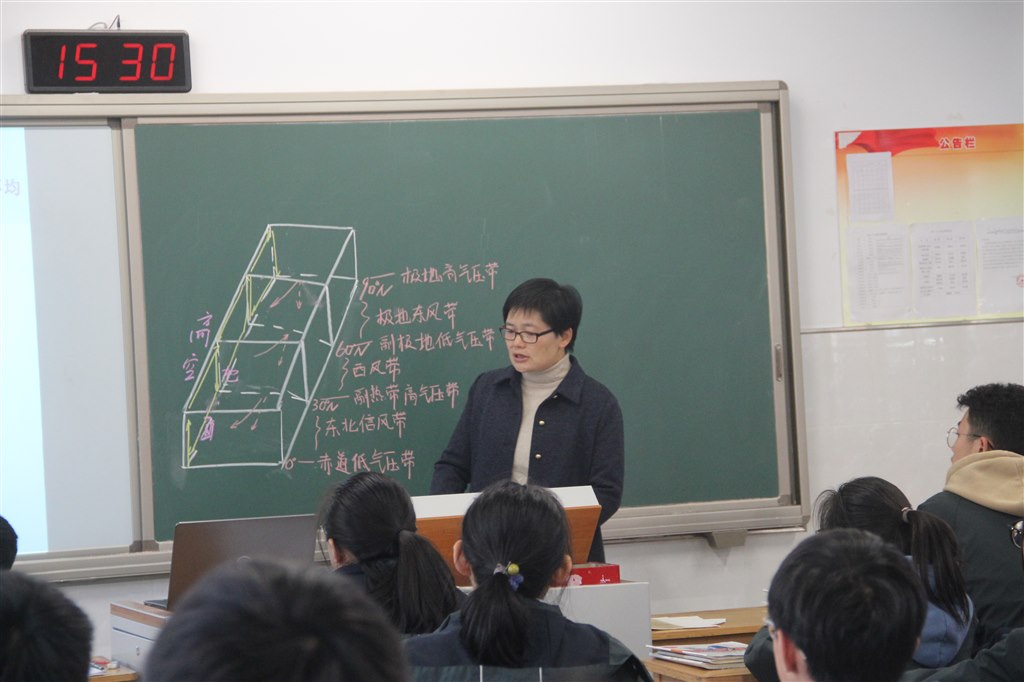 15 30
公告栏
均
90°N 极地高气压带
极地东风带
60°N 副极地低气压带
西风带
30°N 副热带高气压带
东北信风带
0° 赤道低气压带
高空
地面